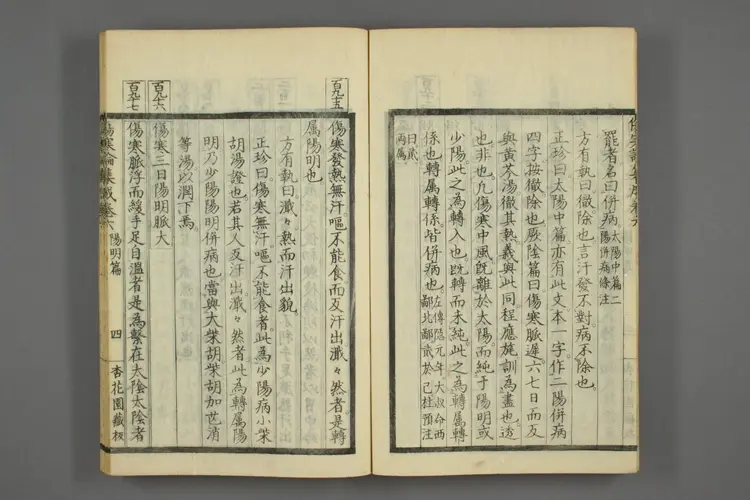 罷者名曰併病太陽中篇二陽併病條注
方有執曰徹除也言汗發不對病不除也
正珍曰太陽中篇亦有此文本一字作二陽併病
四字按徹除也厥陰篇曰傷寒脈遲六七日而反
與黃芩湯徹其熱義與此同程應旄訓為盡也逵
也非也凡傷寒中風既離於太陽而純于陽明或
少陽此之為轉入也既轉而未純此之為轉屬轉
係也轉屬轉係皆併病也左傳隱元年大叔命西鄙北鄙貳於己杜預注
曰貳兩屬
百九十五 傷寒發熱無汗嘔不能食而反汗出濈々然者是轉
屬陽明也
方有執曰濈々熱而汗出貌
正珍曰傷寒無汗嘔不能食者此為少陽病小柴
胡湯證也若其人反汗出濈々然者此為轉屬陽
明乃少陽陽明併病也當與大柴胡柴胡加芒消
等湯以潤下焉
百九十六 傷寒三日陽明脈大
百九十七 傷寒脈浮而緩手足自溫者是為繫在太陰太陰者
傷寒論集成卷六 陽明篇 四 杏花園藏板